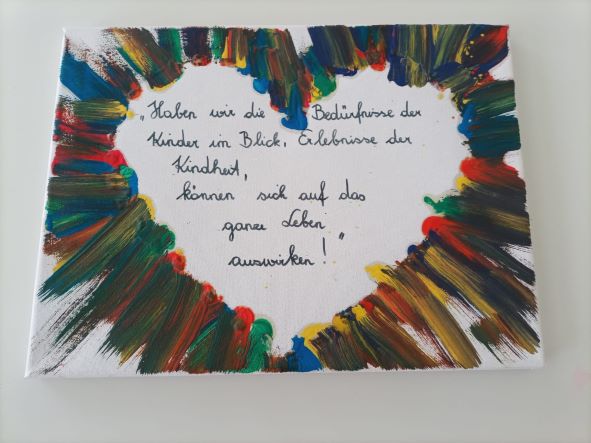 „Haben wir die Bedürfnisse der
Kinder im Blick. Erlebnisse der
Kindheit,
können sich auf das
ganze Leben
auswirken!“